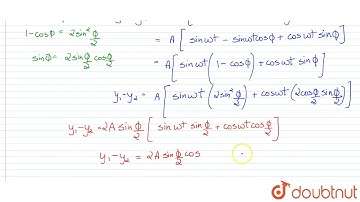 1-cosφ = 2sin²φ/2
sinφ = 2sinφ/2 cosφ/2
= A[sinωt - sinωt cosφ + cosωt sinφ]
= A[sinωt(1-cosφ) + cosωt sinφ]
y₁-y₂ = A[sinωt(2sin²φ/2) + cosωt(2cosφ/2 sinφ/2)]
y₁-y₂ = 2A sinφ/2 [sinωt sinφ/2 + cosωt cosφ/2]
y₁-y₂ = 2A sinφ/2 cos
doubtnut